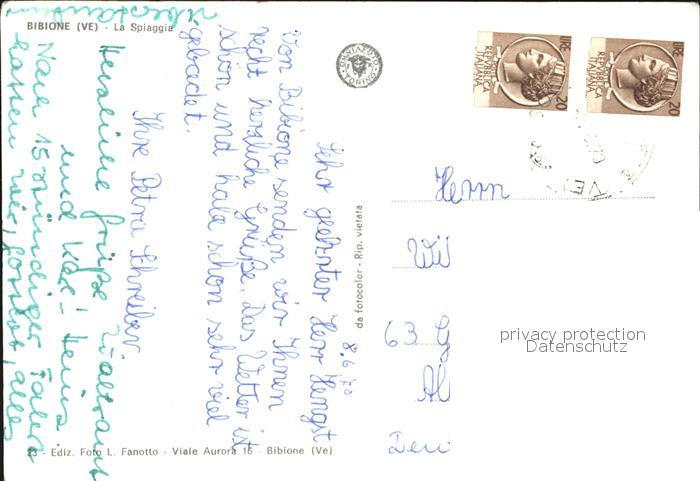 BIBIONE (VE) - La Spiaggia
8.6.70
Sehr geehrter Herr Hengst
Von Bibione senden wir Ihnen
recht herzliche Grüße. Das Wetter ist
schön und habe schon sehr viel
gebadet.
Ihre Petra Schreiber.
Herzliche Grüße
und
Nach 15 stündiger
wir, alles
überstanden
23 - Ediz. Foto L. Fanotto - Viale Aurora 16 - Bibione (Ve)
da fotocolor - Rip. vietata
LIRE 20
REPUBBLICA
ITALIANA
LIRE 20
REPUBBLICA
ITALIANA
Herrn
Wil
63 G
Al
privacy protection
Datenschutz